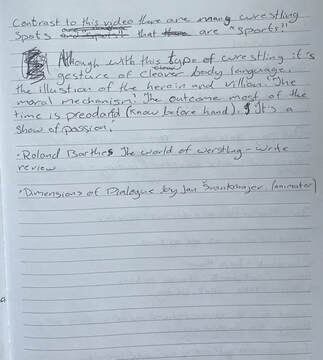 Contrast to this video there are many wrestling
Spots that are "sports"
Although with this type of wrestling it's
gesture of cleaver body language.
the illustion of the heroin and villion. The
moral mechanism! The outcome most of the
time is predard (know before hand). It's a
show of passion.'
· Roland Barthes The world of werstling - write
review
· Dimensions of Dialogue by Jan Švankmajer (animator)